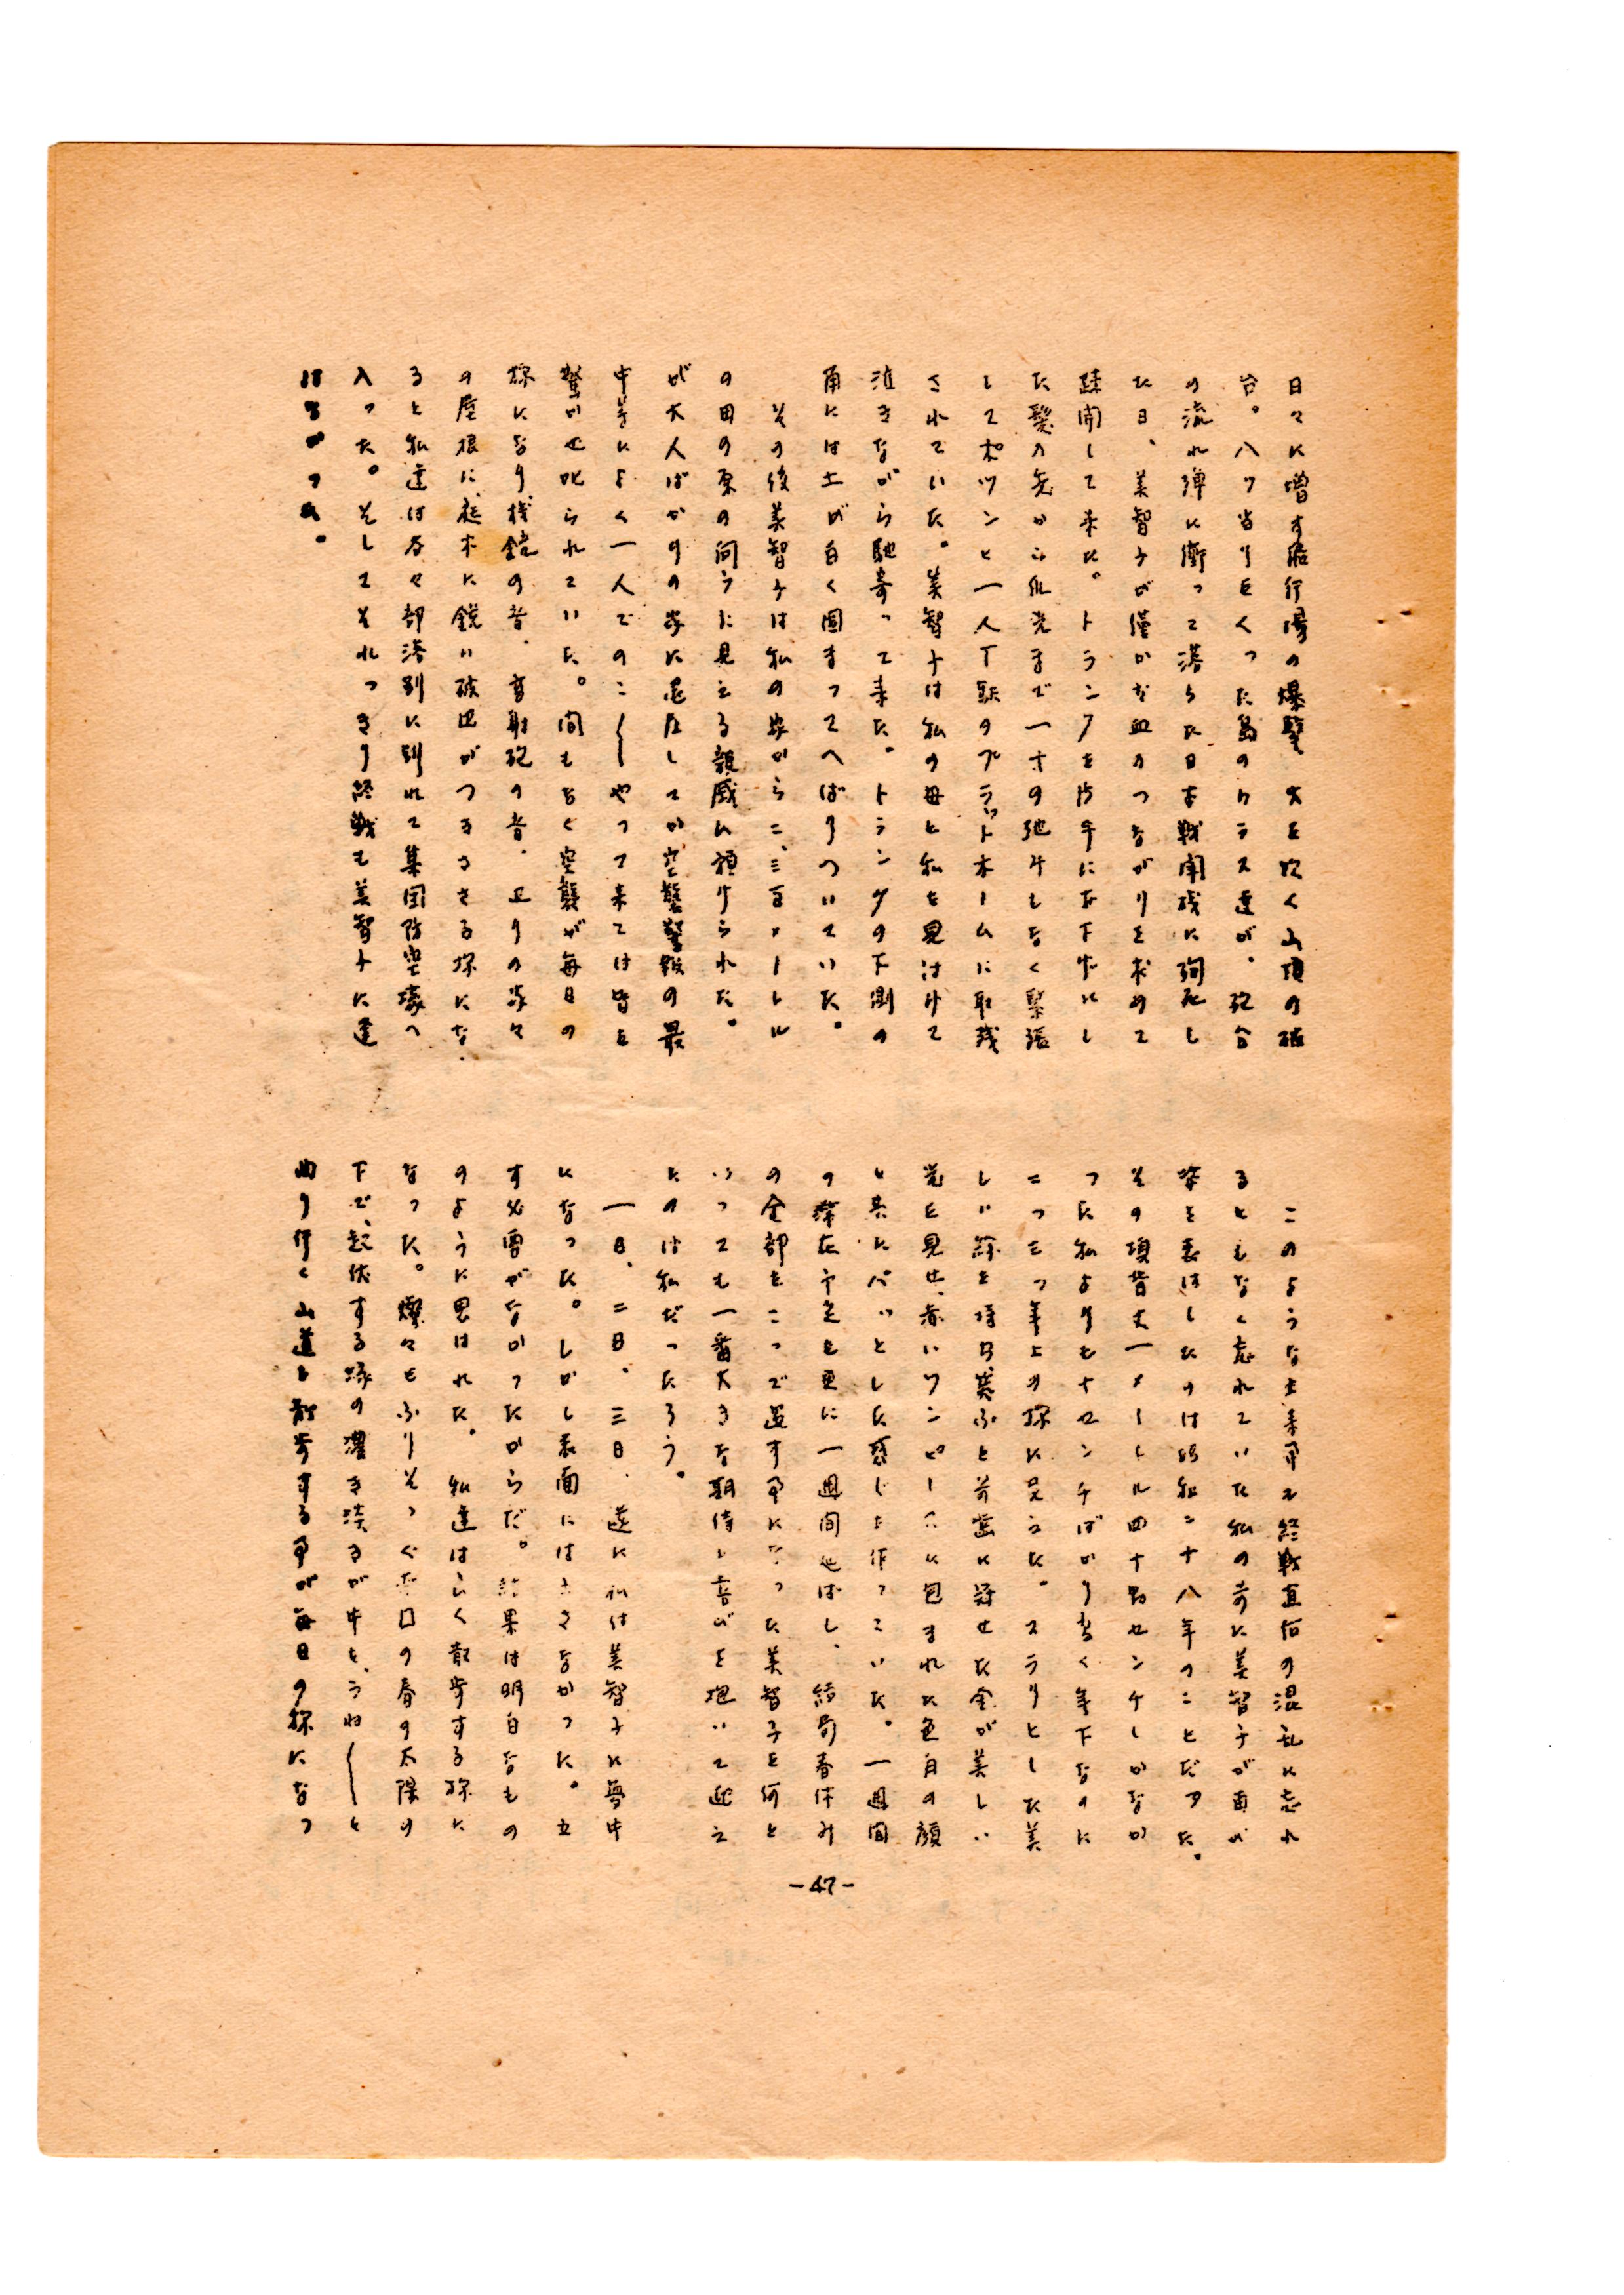 日々に増す飛行場の爆撃、火を吹く山頂の砲
台。八つ当りをくった島のカラス達が、砲台
の流れ弾に衝って落ちた日本戦闘機に殉死し
た日、美智子が僅かな血のつながりを求めて
疎開して来た。トランクを片手にお下げにし
た髪の先から爪先まで一寸の弛みもなく緊張
してポツンと一人T駅のプラットホームに取残
されていた。美智子は私の母と私を見つけて
泣きながら馳寄って来た。トランクの下側の
角には土が白く固まってへばりついていた。
その後美智子は私の家から二、三百メートル
の田の原の向うに見える親戚に預けられた。
が大人ばかりの家に退屈してか空襲警報の最
中等によく一人でのこ〱やって来ては皆を
驚かせ叱られていた。間もなく空襲が毎日の
様になり機銃の音、高射砲の音、辺りの家々
の屋根に、庭木に鋭い破片がつきささる様にな
ると私達は各々部落別に別れて集団防空壕へ
入った。そしてそれっきり終戦も美智子に逢
はなかった。
このような出来事を終戦直后の混乱に忘れ
るともなく忘れていた私の前に美智子が再び
姿を表はしたのは昭和二十八年のことだった。
その頃背丈一メートル四十五センチしかなか
った私よりも十センチばかり高く年下なのに
二つ三つ年上の様に見えた。スラリとした美
しい線を持ち笑ふと前歯に冠せた金が美しい
光を見せ、赤いワンピースに包まれた色白の顔
と共にパッとした感じを作っていた。一週間
の滞在予定を更に一週間延ばし、結局春休み
の全部をこっで過す事になった美智子を何と
いっても一番大きな期待と喜びを抱いて迎え
たのは私だったろう。
一日、二日、三日、遂に私は美智子に夢中
になった。しかし表面には出さなかった。出
す必要がなかったからだ。結果は明白なもの
のように思はれた。私達はよく散歩する様に
なった。燦々とふりそゝぐ南国の春の太陽の
下で、起伏する緑の濃き淡きが中を、うね〱と
曲り行く山道を散歩する事が毎日の様になっ
-47-